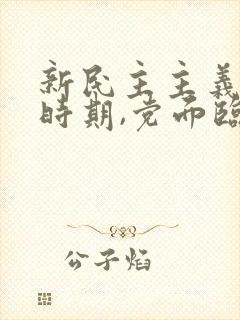 新民主主義
時期,党面臨
公子焰